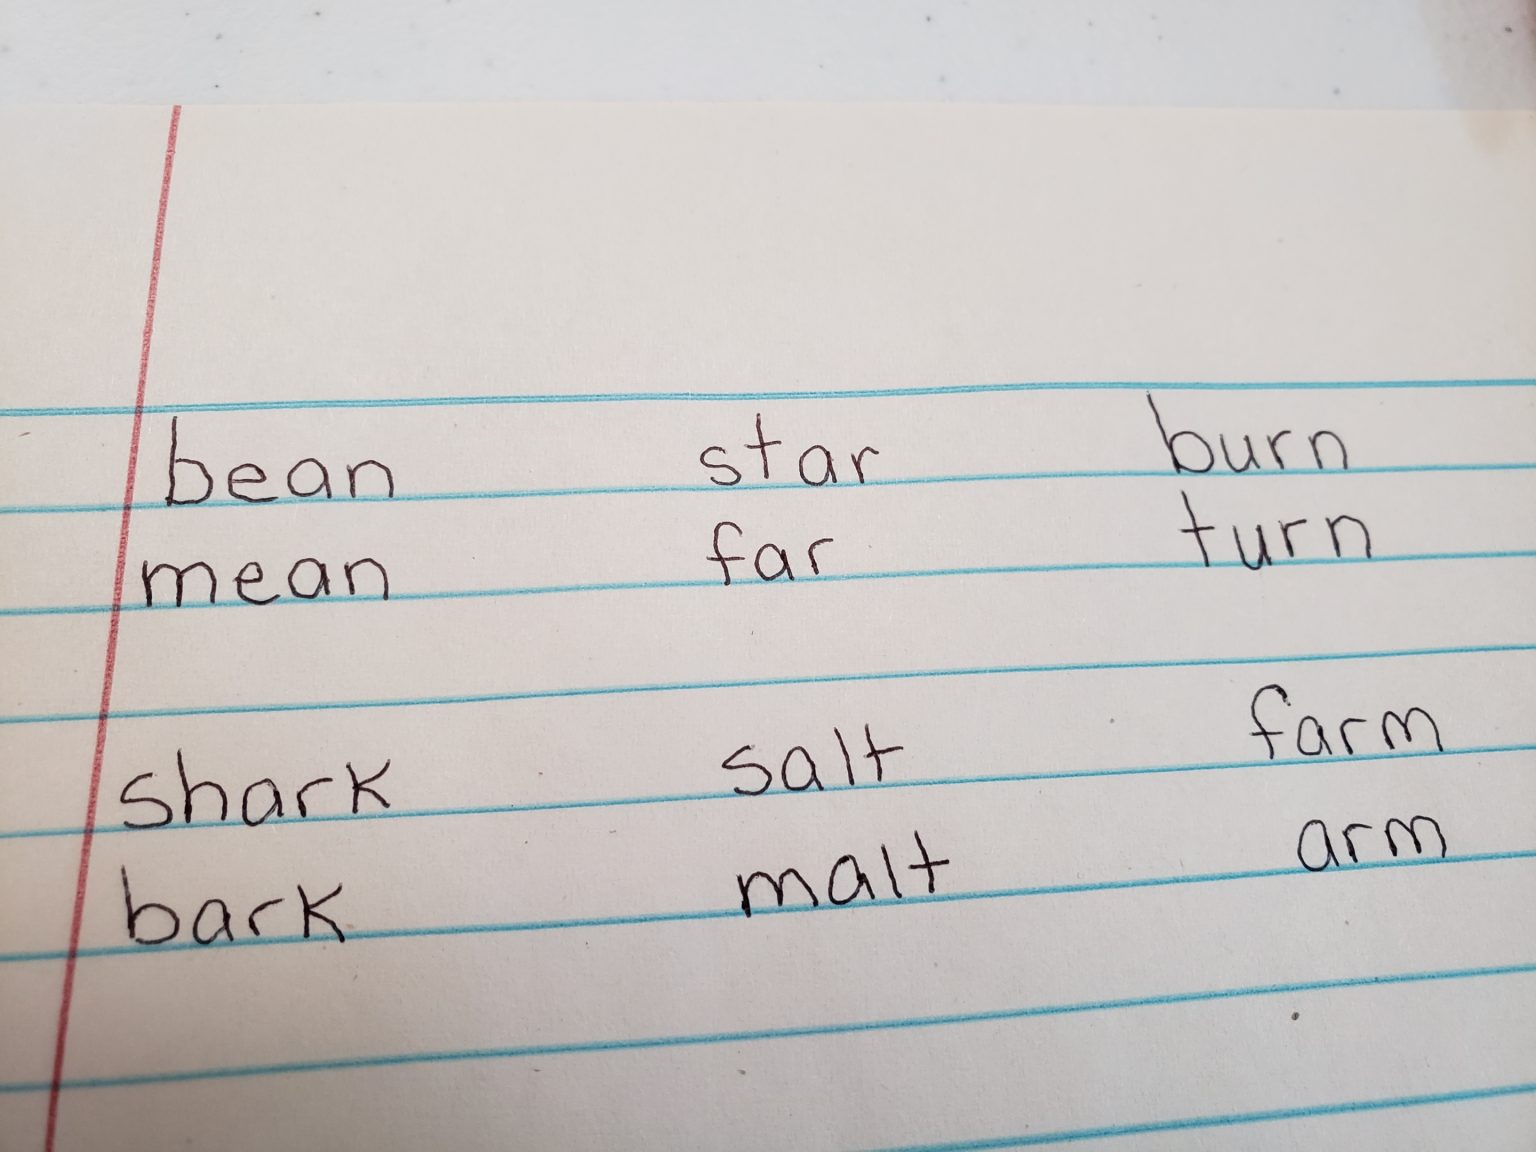 bean star burn
mean far turn
shark salt farm
bark malt arm